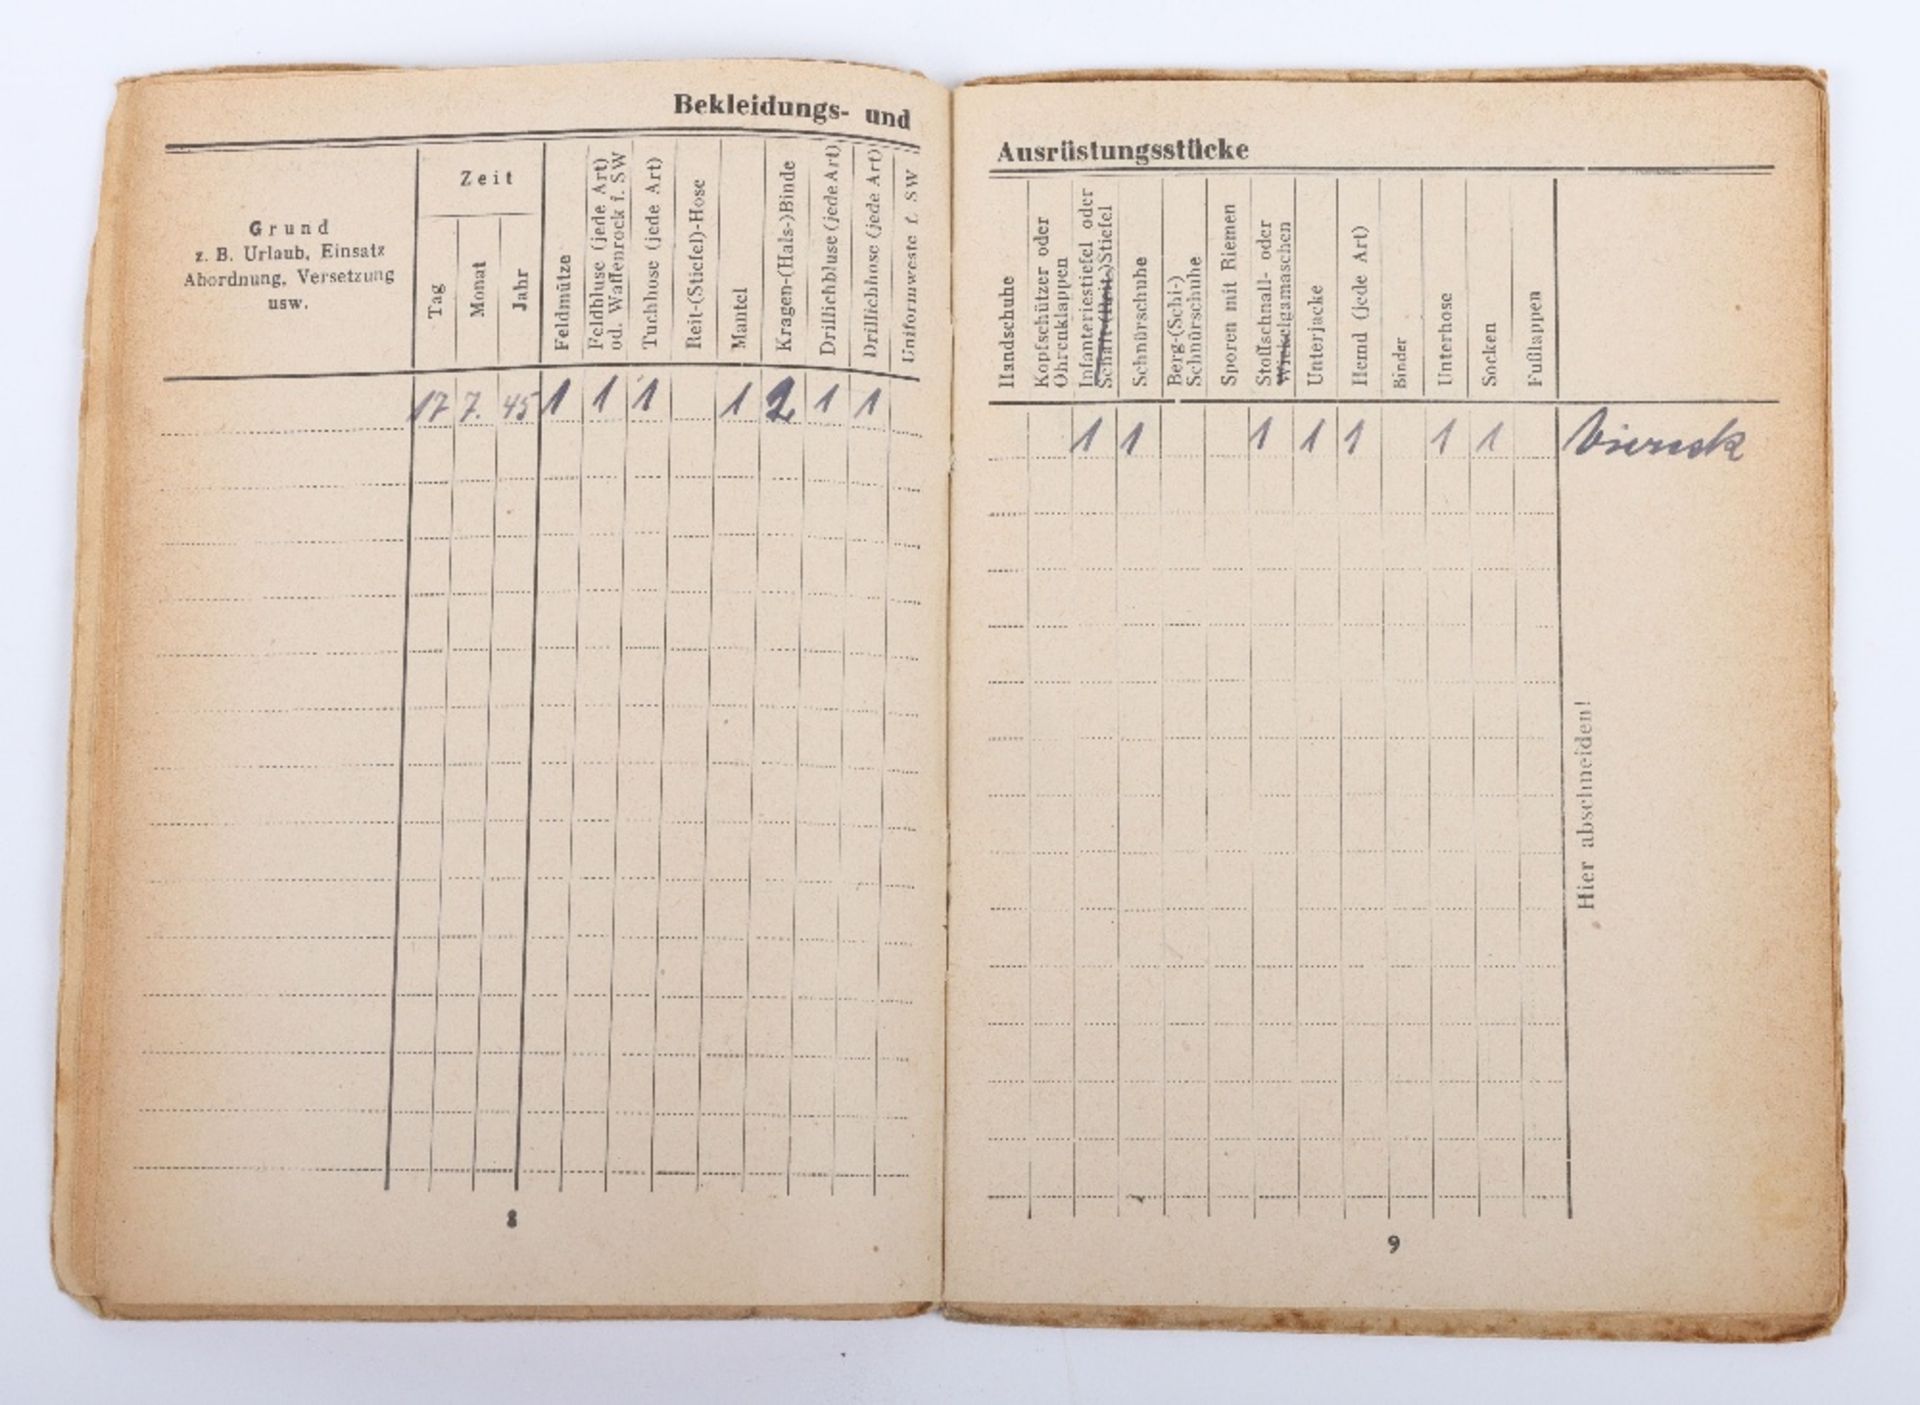 Bekleidungs- und
Grund
z. B. Urlaub, Einsatz
Abordnung, Versetzung
usw.
Zeit
Tag
Monat
Jahr
Feldmütze
Feldbluse (jede Art)
od. Waffenrock f. SW
Tuchhose (jede Art)
Reit-(Stiefel)-Hose
Mantel
Kragen-(Hals-)Binde
Drillichbluse (jede Art)
Drillichhose (jede Art)
Uniformweste f. SW
17 7. 45 1 1 1 1 2 1 1
8
Ausrüstungsstücke
Handschuhe
Kopfschützer oder
Ohrenklappen
Infanteriestiefel oder
Schaft-(Reit-)Stiefel
Schnürschuhe
Berg-(Schi-)
Schnürschuhe
Sporen mit Riemen
Stoffschnall- oder
Wickelgamaschen
Unterjacke
Hemd (jede Art)
Binder
Unterhose
Socken
Fußlappen
1 1 1 1 1 1 1
Hier abschneiden!
9